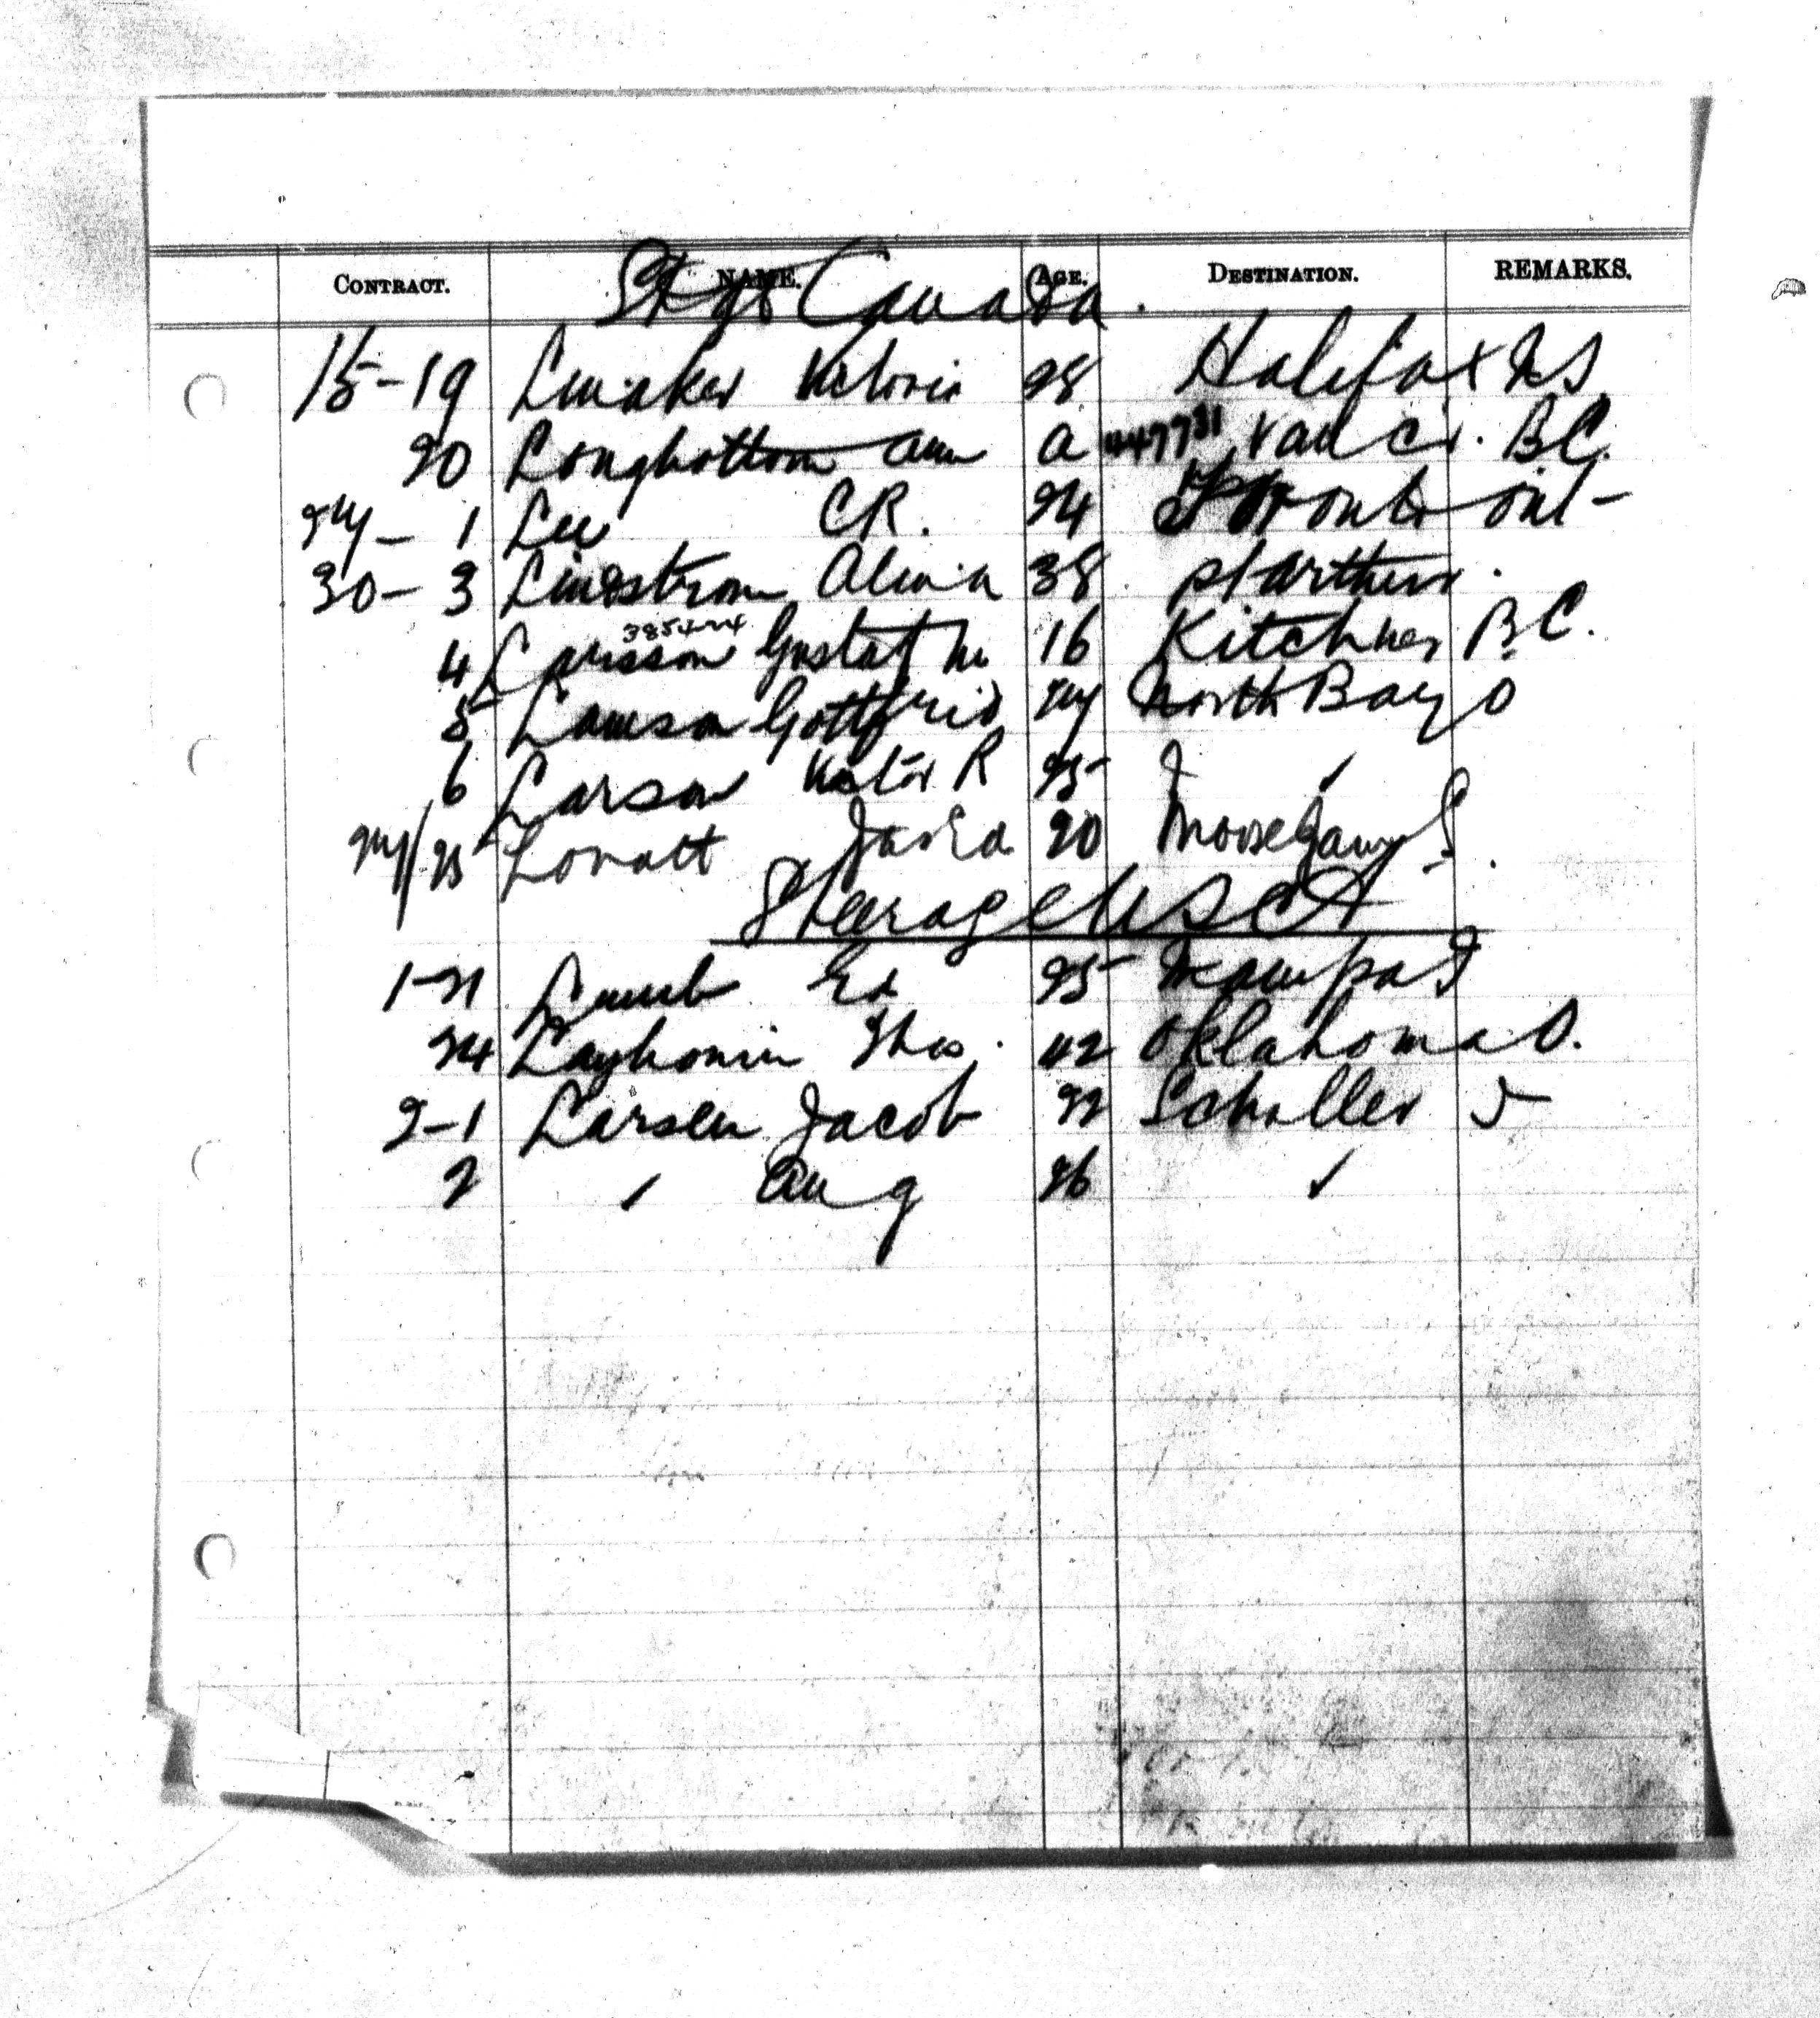 CONTRACT. NAME. AGE. DESTINATION. REMARKS.
Stge Canada.
15-19 Linaker Victoria 28 Halifax NS
20 Longbottom Ann a Vancr. BC.
24- 1 Lee CR. 24 Toronto Ont-
30- 3 Lindstrom Alina 38 pt arthur.
4 Larsson Gustaf M 16 Kitchner B.C.
5 Lawson Gottfrid 24 North Bay O
6 Larson Victor R 25 
24/25 Lovatt Jas Ed 20 Moose Jaw S.
Steerage USA
1-21 Lumb Ed 25 Nampa I
24 Layhonin Thos. 42 Oklahoma O.
2-1 Larsen Jacob 22 Schaller I
2 " Aug 26 "